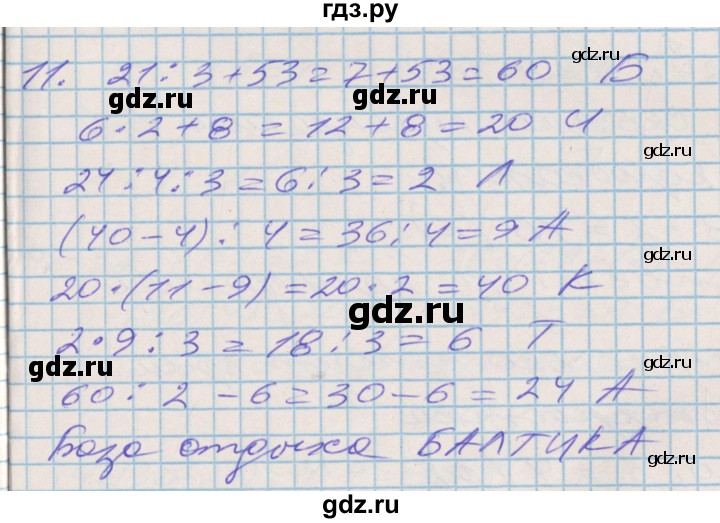 гдз.ру
11. 21 : 3 + 53 = 7 + 53 = 60 Б
gdz.ru
gdz.ru
gdz.ru
6 · 2 + 8 = 12 + 8 = 20 И
24 : 4 : 3 = 6 : 3 = 2 Л
gdz.ru
(40 - 4) : 4 = 36 : 4 = 9 А
gdz.ru
20 · (11 - 9) = 20 · 2 = 40 К
gdz.ru
2 · 9 : 3 = 18 : 3 = 6 Т
gdz.ru
gdz.ru
60 : 2 - 6 = 30 - 6 = 24 А
База отдыха БАЛТИКА
gdz.ru
gdz.ru